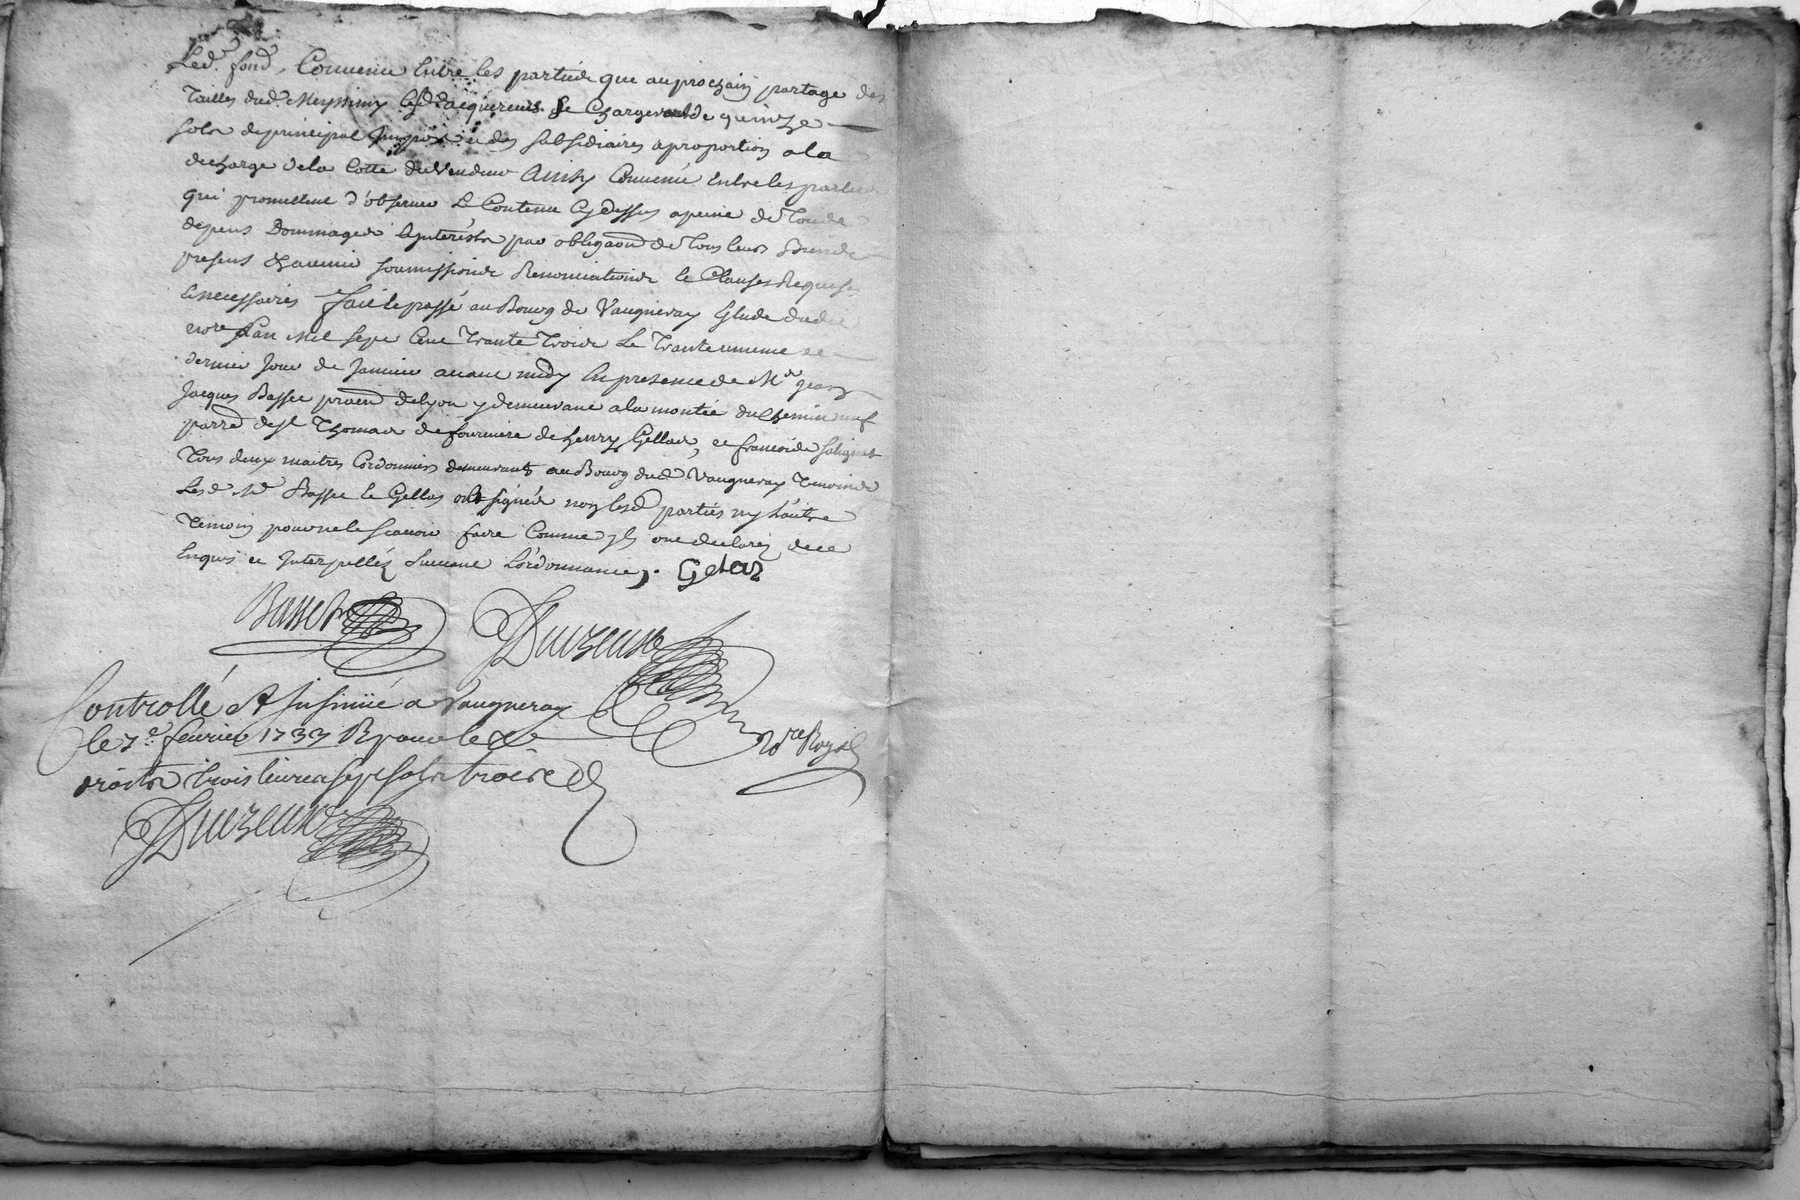 Led. fond, Convenu Entre les parties que au prochain partage des
Tailles dud. Meyssimy lesd. acquereurs se Chargeront de quinze
sols de principal Impost et des subsidiaires a proportion a la
decharge de la Cotte du Vendeur Ainsy Convenu Entre les parties
qui promettent d'observer Le Contenu Cy dessus a peine de Tous
depens Dommages Interests par obligaon de Tous leurs Biens
presens & avenir soumissions Renonciations & Clauses Requises
& necessaires fait & passé au Bourg de Vaugneray Etude dud.
nore L'an Mil sept Cent Trante Trois Le Trante unieme et
dernier Jour de Janvier avant midy En presence de Mr Jean
Jacques Basset y demeurant a la montée du Chemin neuf
de Henry Gellas, et francois
Tous deux maitres Cordonniers demeurants au Bourg dud. Vaugneray Temoins
Lesd. Mr Basset & Gellas ont signés non lesd. parties ny L'autre
Temoin pour ne le scavoir faire Comme ils ont declarés de ce
Enquis et Interpellés suivant L'ordonnance. Gelaz
Basset
Controllé et Insinüé a Vaugneray
le 7e. fevrier 1733 R pour les
Nore Royal
droits trois livres sept sols trois d